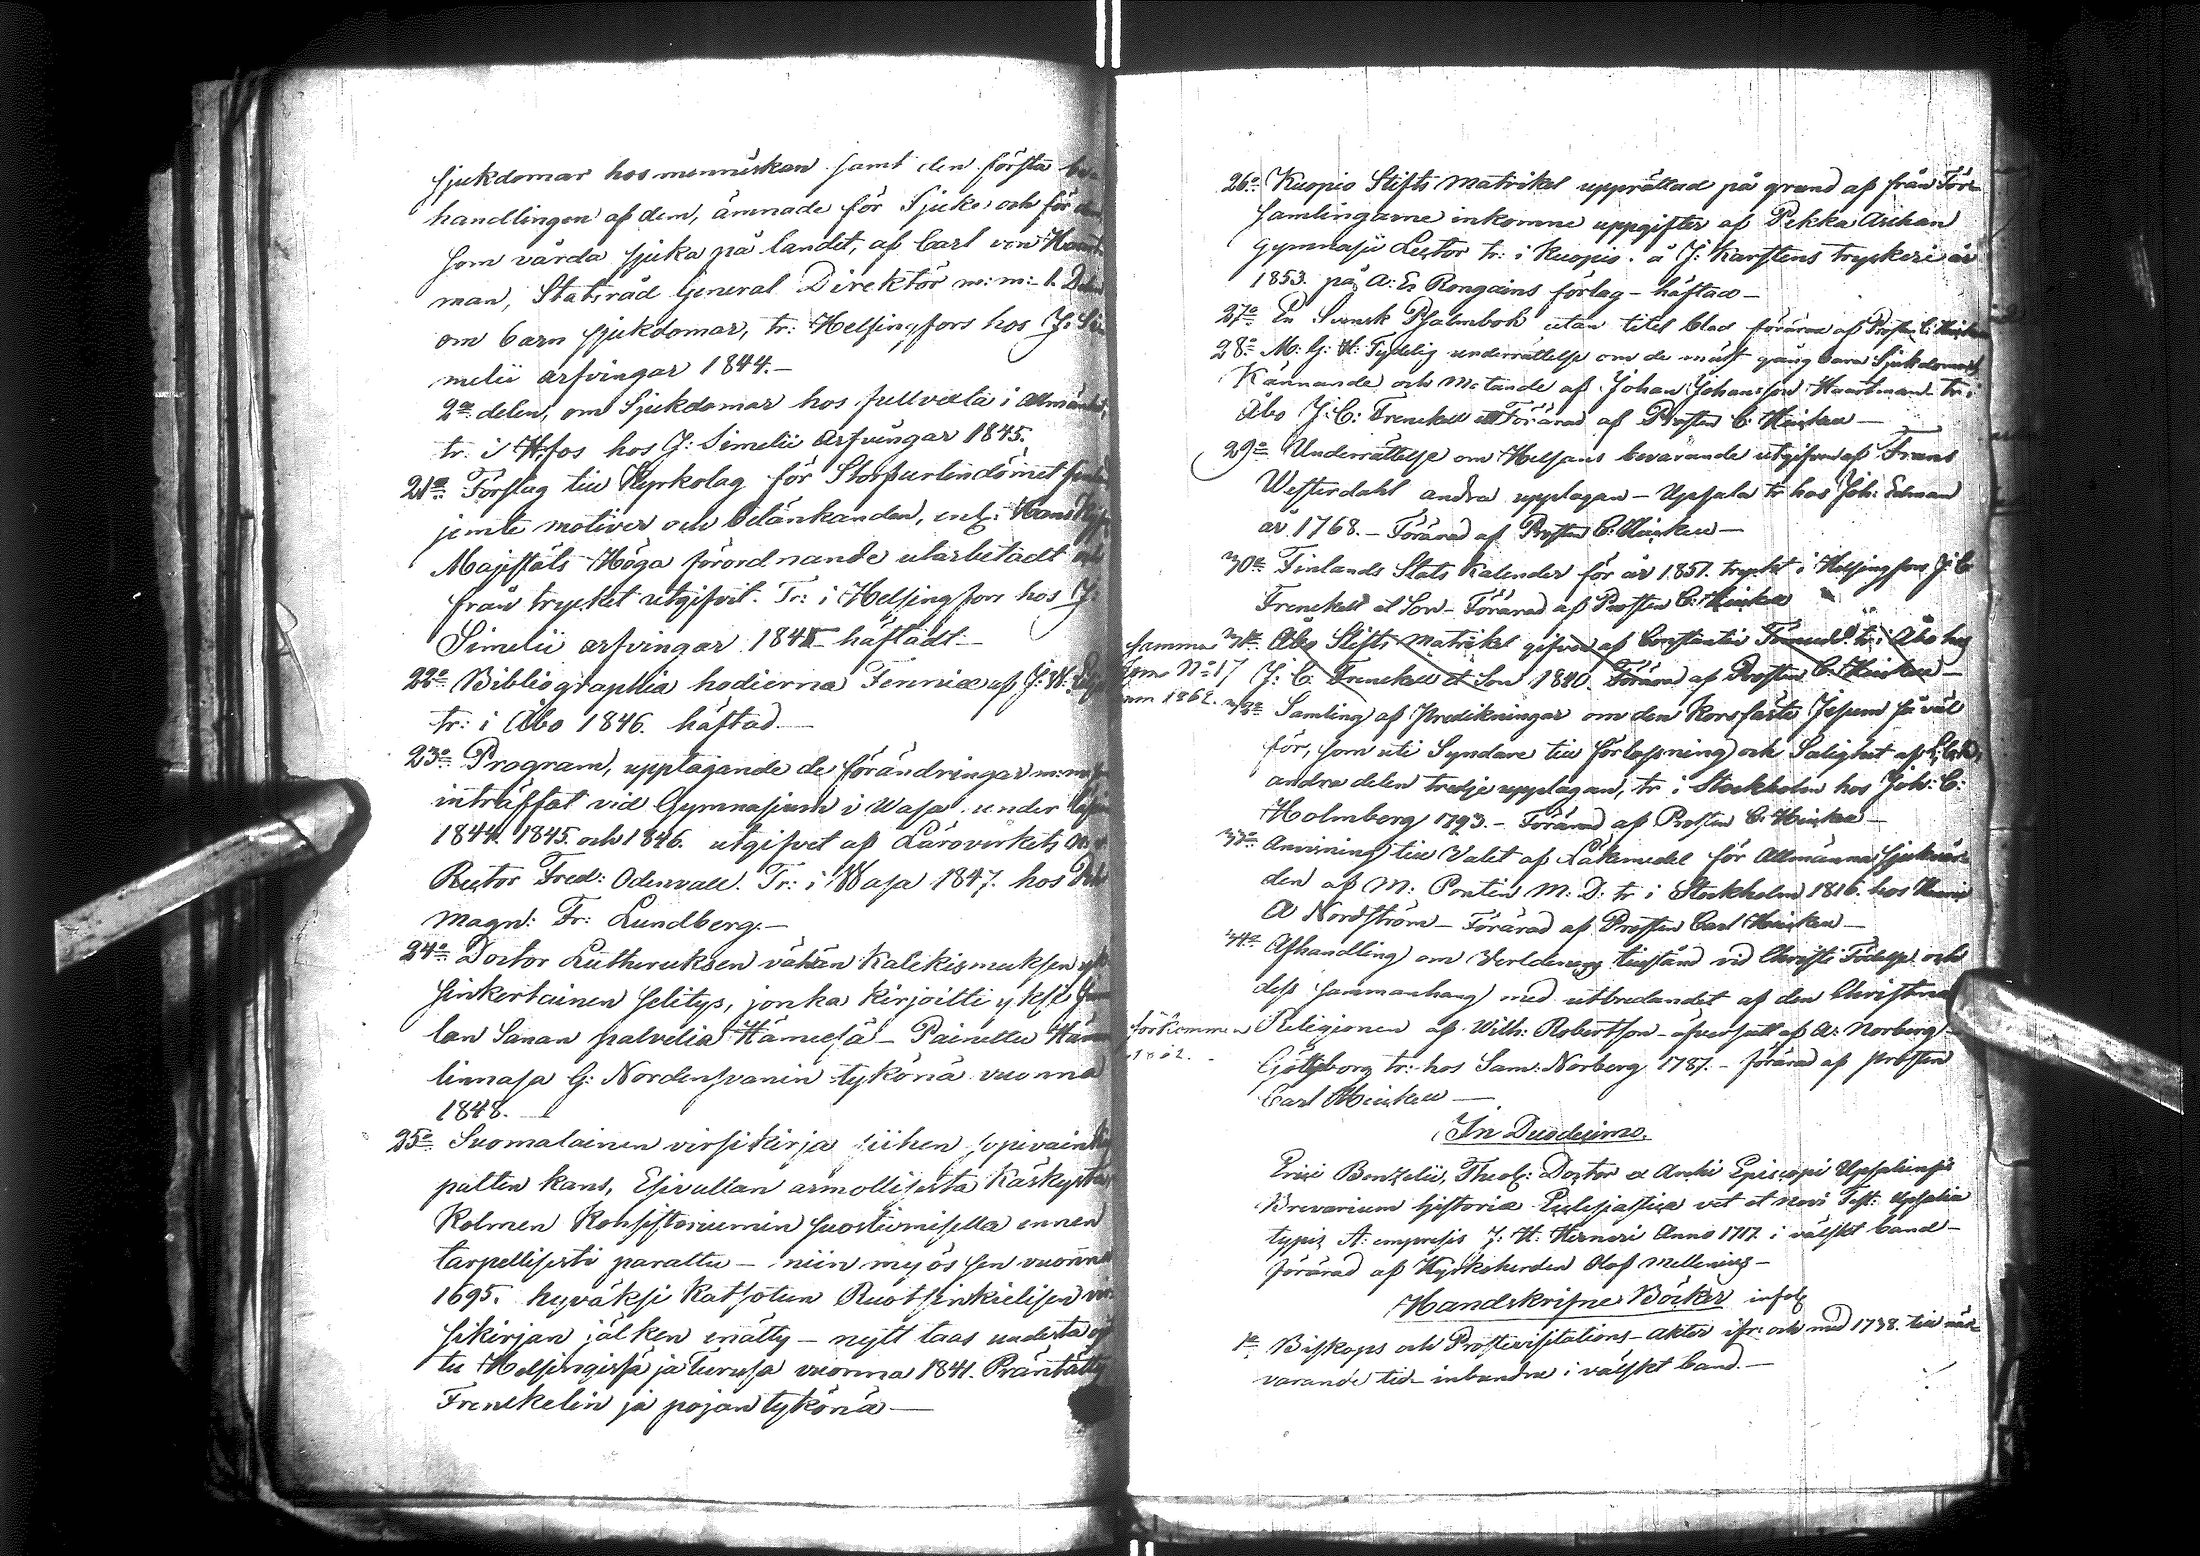 sjukdomar hos menniskan samt den första be-
handlingen af dem, ämnade för Sjuke och för
som vårda sjuka på landet, af Carl von Haart-
man, Statsråd General Direktör m: m: 1. Delen
om barn sjukdomar, tr: Helsingfors hos J: Si-
melii arfvingar 1844.—
2a delen, om Sjukdomar hos fullväxta i Allmänhet,
tr. i H:fos hos J: Simelii Arfvingar 1845.
21o Förslag till Kyrkolag för Storfurstendömet
jemte motiver och betänkanden, enl: Hans
Majestäts Höga förordnande utarbetadt och
från trycket utgifvit. Tr: i Helsingfors hos J:
Simelii arfvingar häftadt—
22o Bibliographia hodierna Fenniæ af J: W:
tr: i Åbo 1846. häftad—
23o Program, upptagande de förändringar m: m:
inträffat vid Gymnasium i Wasa under
1844. 1845. och 1846. utgifvet af Läroverkets
Rector Fred: Odenvall. Tr: i Wasa 1847. hos
Magn: Fr: Lundberg.—
24o Doctor Lutheruksen vähän Katekismuksen
sinkertainen selitys, jonka kirjoitti yksi
lan Sanan palvelia Hämeesä— Painettu Hämen
linnasa G: Nordensvanin tykönä vuonna
1848.—
25o Suomalainen virsikirja siihen sopivain
palten kans, Esivallan armollisesta Käskystä
Kolmen Konsistoriumin suostumisella ennen
tarpellisesti parattu— niin myös sen vuonna
1695. hyväksi katsotun Ruotsinkielisen vir-
sikirjan jälken enätty— nytt taas
tu Helsingissä ja Turusa vuonna 1841. Präntätty
Frenckelin ja pojan tykönä—
26o Kuopio Stifts Matrikel upprättad på grund af från För-
samlingarne inkomne uppgifter af Pekka Asikan
Gymnasii Lector tr: i Kuopio. å J: Karstens tryckeri år
1853. på A: E Rongains förlag— häftad—
27o En Svensk Psalmbok utan titel blad förärad af Prosten C:
28o M: G: H: Tydelig underrättelse om de mäst gång bara Sjukdomars
Kännande och Motande af Johan Johansson Haartman tr: i
Åbo J: C: Frenckell Förärad af Prosten C:
29o Underrättelse om Helsans bevarande utgifven af Frans
Westerdahl andra upplagan— Upsala tr hos Joh: Edman
år 1768.— Förärad af Prosten C:
30o Finlands Stats Kalender för år 1851. tryckt i Helsingfors J: C
Frenckell et Son— Förärad af Prosten C:
samma
som No 17
1862.
31o Åbo Stifts Matrikel gifven af Constantin tr: i Åbo hos
J: C: Frenckell et Son 1840. Förärad af Prosten C:
32o Samling af Predikningar om den Korsfäste Jesum så väl
för, som uti Syndare till förlossning och Salighet af
andra delen tredje upplagan, tr i Stockholm hos Joh: C:
Holmberg 1793.— Förärad af Prosten C:
33o Anvisning till Valet af Läkemedel för Allmänna Sjukvår-
den af M: Pontin M: D: tr i Stockholm 1816. hos
A Nordström— Förärad af Prosten Carl
34o Afhandling om Verldenes tillstånd vid Christi Födelse och
dess sammanhang med utbredandet af den Christna
förkommen
Religionen af Wilh: Robertson— öfversatt af A: Norberg—
Götheborg tr: hos Sam: Norberg 1787.— förärad af prosten
Carl
In Duodecimo.
Erici Benzelii, Theol: Doctor & Archi Episcopi Upsaliensis
Brevarium historiæ Eccles­iasticæ vet et novi Test: Upsaliæ
typis J: H: Werneri Anno 1717. i välskt band—
förärad af Kyrkoherden Olof Mellenius—
Handskrifne Böcker infol:
1o Biskops och Prostevisitations— Akter ifr: och med 1738. till när-
varande tid inbundne i välskt band.—